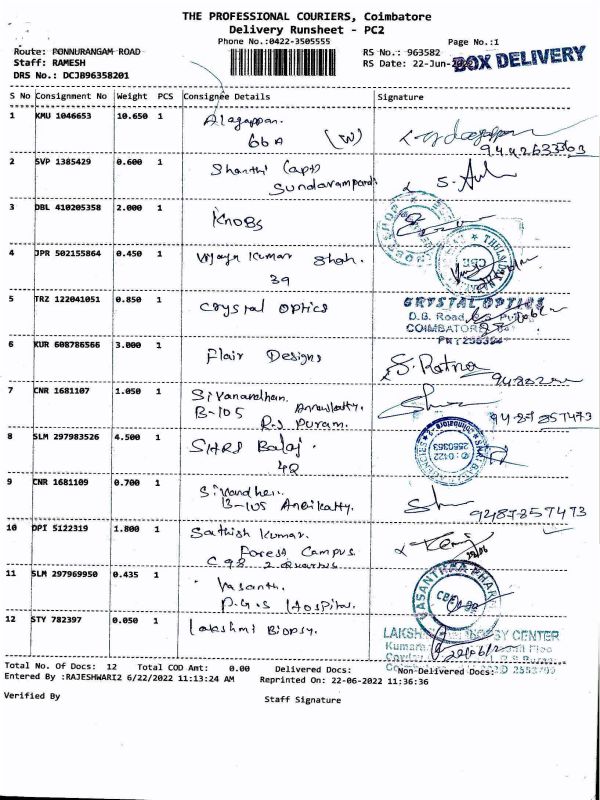 THE PROFESSIONAL COURIERS, Coimbatore
Delivery Runsheet - PC2
Phone No.:0422-3505555 Page No.:1
Route: PONNURANGAM ROAD RS No.: 963582
Staff: RAMESH RS Date: 22-Jun-2022 BOX DELIVERY
DRS No.: DCJB96358201
S No Consignment No Weight PCS Consignee Details Signature
1 KMU 1046653 10.650 1 Alagappan.
66A (W)
9442633303
2 SVP 1385429 0.600 1 Shanthi (apt)
Sundarampardi
3 DBL 410205358 2.000 1 KNOBS
4 JPR 502155864 0.450 1 Vijaya Kumar Shah.
39
5 TRZ 122041051 0.850 1 Crystal Optics CRYSTAL OPTICS
D.B. Road,
COIMBATORE
6 KUR 608786566 3.000 1 Flair Designs S. Ratna
7 CNR 1681107 1.050 1 Sivanardhan.
B-105 Annaikatty.
R.S Puram. 94878 57473
8 SLM 297983526 4.500 1 SHRI Balaj.
42
9 CNR 1681109 0.700 1 Sivandhen.
B-105 Anaikatty. 9487857473
10 DPI 5122319 1.800 1 Sathish Kumar.
Forest Campus.
C.98 2 Quarters
11 SLM 297969950 0.435 1 Vasanth. VASANTHAA PHAR
P.G.S Hospital.
12 STY 782397 0.050 1 Lakshmi Biopsy.
LAKSH SY CENTER
22/06/2
Total No. Of Docs: 12 Total COD Amt: 0.00 Delivered Docs: Non-Delivered Docs:
Entered By :RAJESHWARI2 6/22/2022 11:13:24 AM Reprinted On: 22-06-2022 11:36:36
Verified By Staff Signature